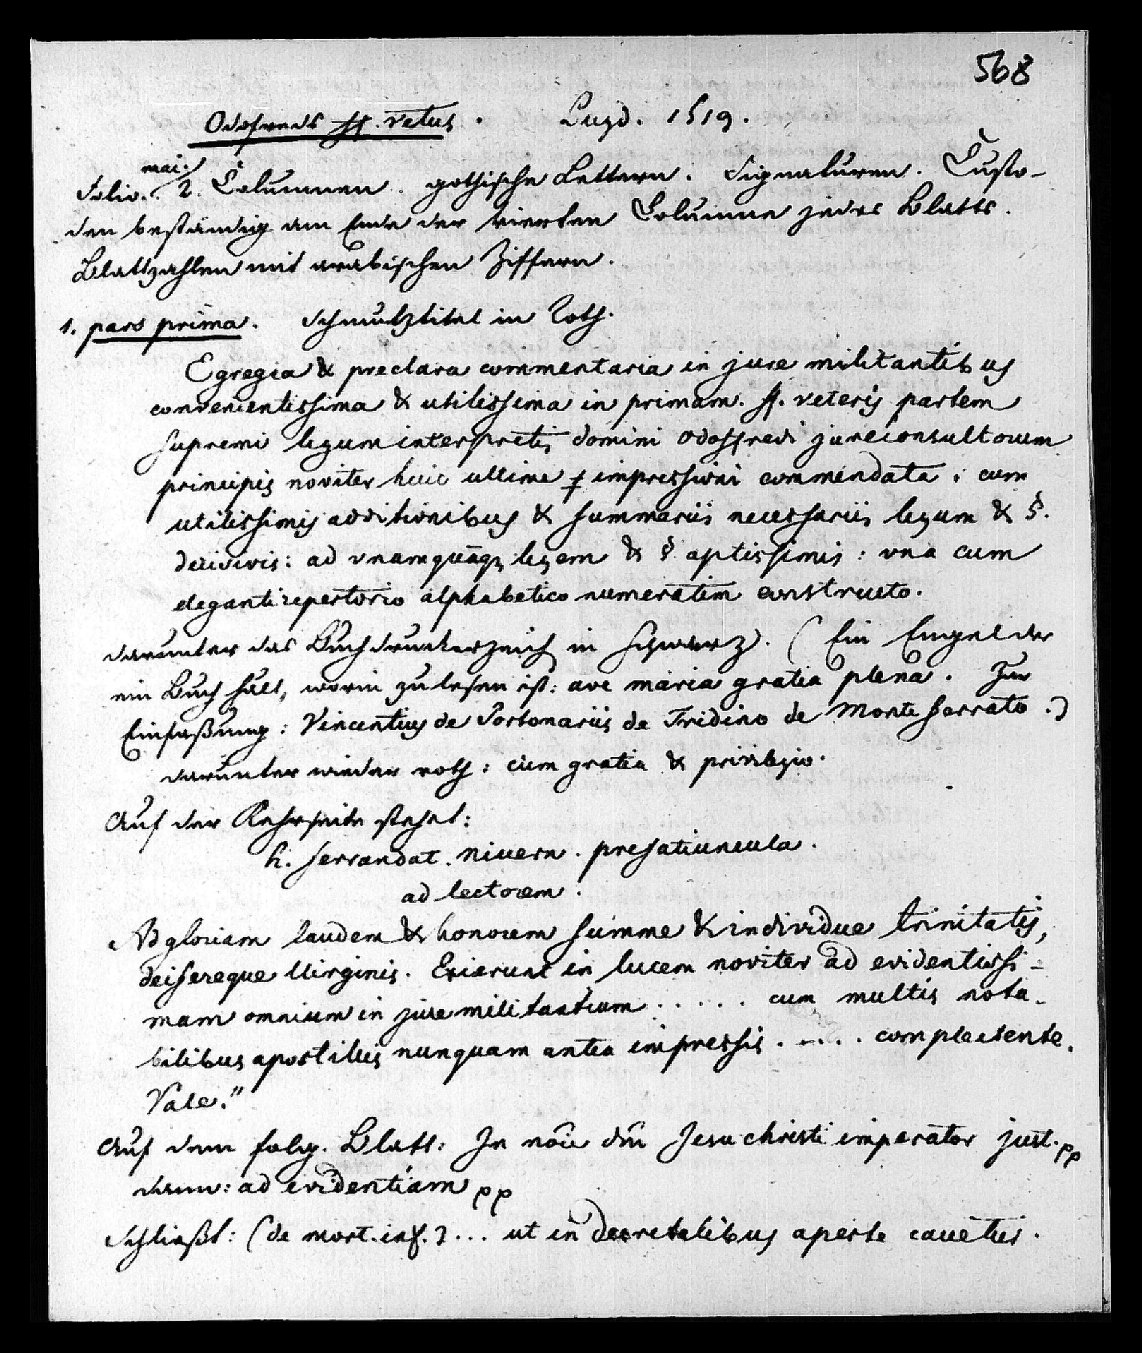 568
Odofreds ff. vetus. Lugd. 1519.
mai.
Folio. 2. Columnen. gothische Lettern. Signaturen. Custo-
den beständig am Ende der vierten Columne jedes Blatts.
Blattzahlen mit arabischen Ziffern.
1. pars prima. Schmutztitel in Roth.
Egregia & preclara commentaria in jure militantibus
convenientissima & utilissima in primam. ff. veteris partem
supremi legum interpretis domini odoffredi jureconsultorum
principis noviter huic ultime impressioni commendata: cum
utilissimis additionibus & summariis necessariis legum & §.
decisivis: ad vnamquāqz legem & § aptissimis: vna cum
eleganti repertorio alphabetico numeratim constructo.
darunter das Buchdruckerzeich in Schwarz. (Ein Engel der
ein Buch hält, worin zu lesen ist: ave maria gratia plena. Zur
Einfaßung: Vincentius de Portonariis de Tridino de Monte ferrato.)
darunter wieder roth: cum gratia & privilegio.
Auf der Kehrseite stehet:
h. ferrandat. nivern. prefatiuncula.
ad lectorem.
AD gloriam laudem & honorem summe & individue trinitatis,
deifereque Virginis. Exierunt in lucem noviter ad evidentissi-
mam omnium in jure militantium ..... cum multis nota-
bilibus apostilis nunquam antea impressis ..... complectente.
Vale."
Auf dem folg. Blatt: In nōie dn̄i Jesu christi imperator just. pp
dann: ad evidentiam pp
Schließt: (de mort. inf.) ... ut in decretalibus aperte cavetur.